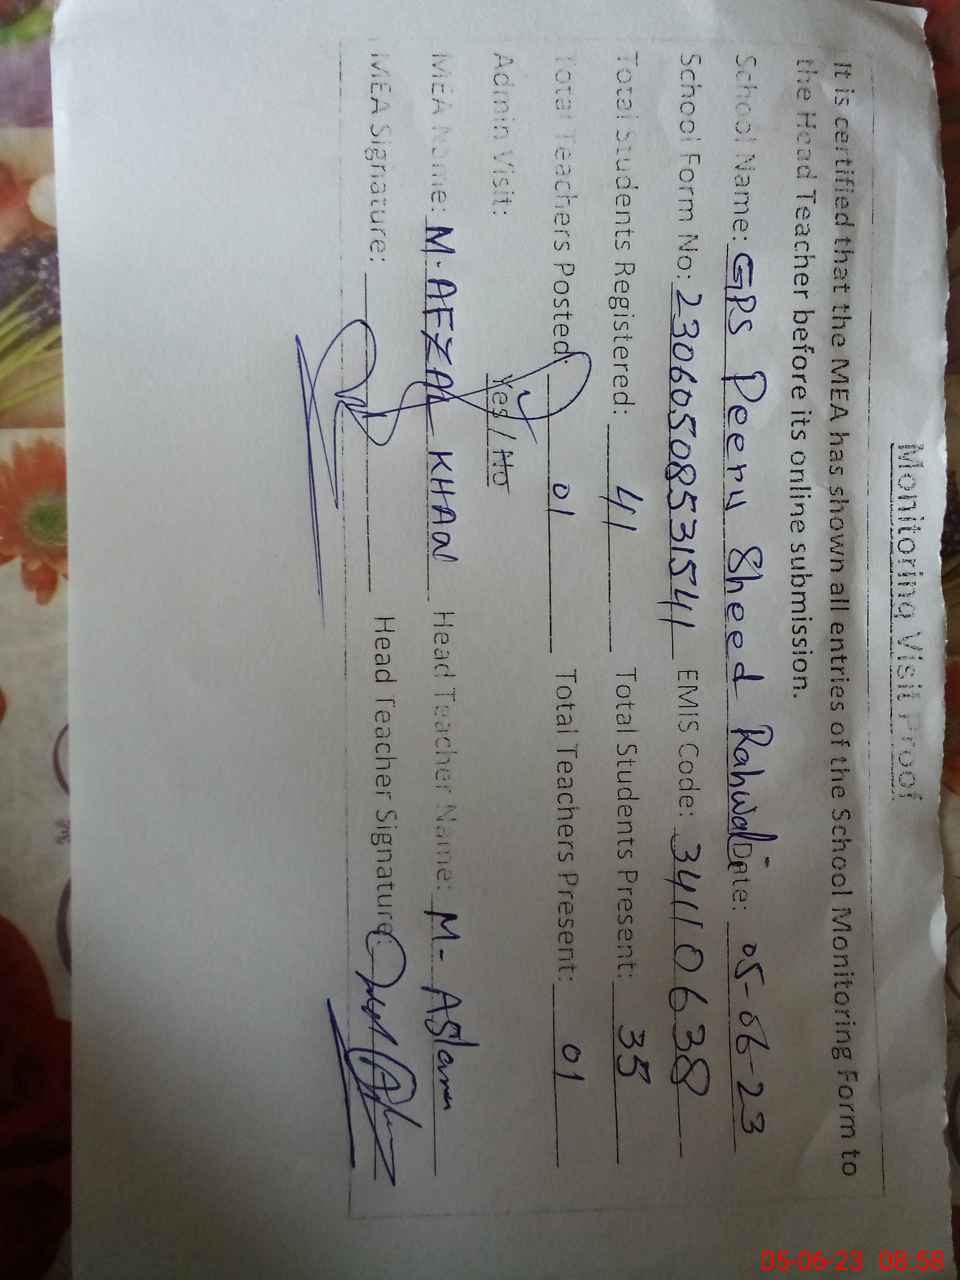 Monitoring Visit Proof
It is certified that the MEA has shown all entries of the School Monitoring Form to
the Head Teacher before its online submission.
School Name: GPS Peeru Sheed Rahwal Date: 05-06-23
School Form No: 23060508531541 EMIS Code: 34110638
Total Students Registered: 41 Total Students Present: 35
Total Teachers Posted: 01 Total Teachers Present: 01
Admin Visit: Yes / No
MEA Name: M. AFZAL KHAN Head Teacher Name: M- ASlam
MEA Signature: Head Teacher Signature:
05-06-23 08:58